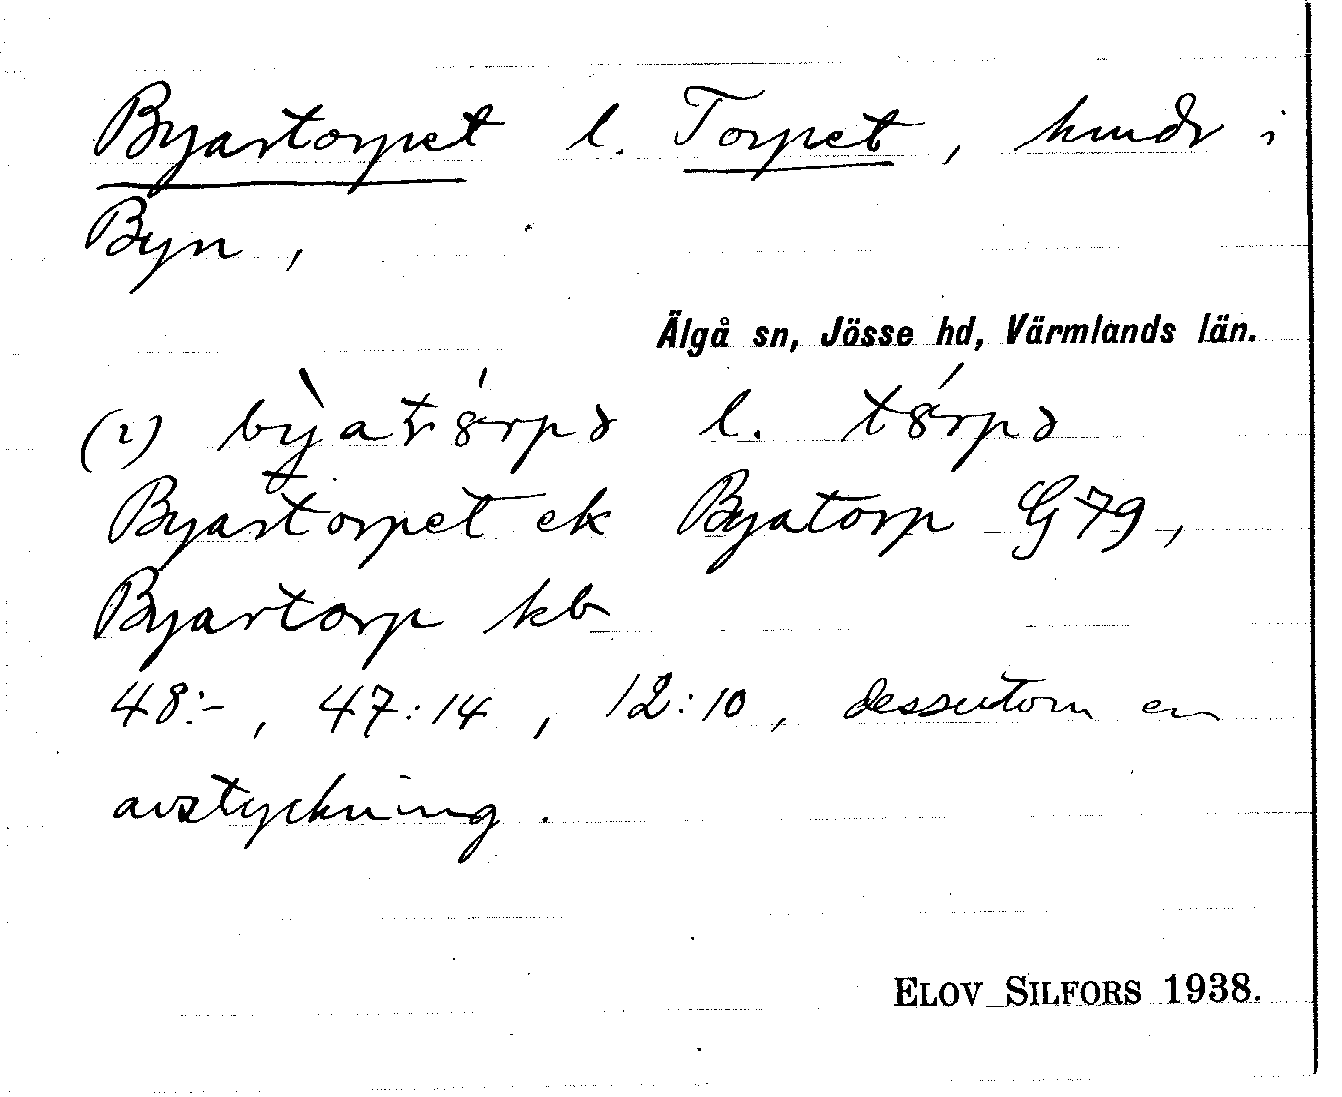 Byartorpet l. Torpet, hmdr i
Byn,
Älgå sn, Jösse hd, Värmlands län.
(2) l.
Byartorpet ek Byatorp G 79,
Byartorp kb
48:-, 47:14, 12:10, dessutom en
avstyckning.
ELOV SILFORS 1938.